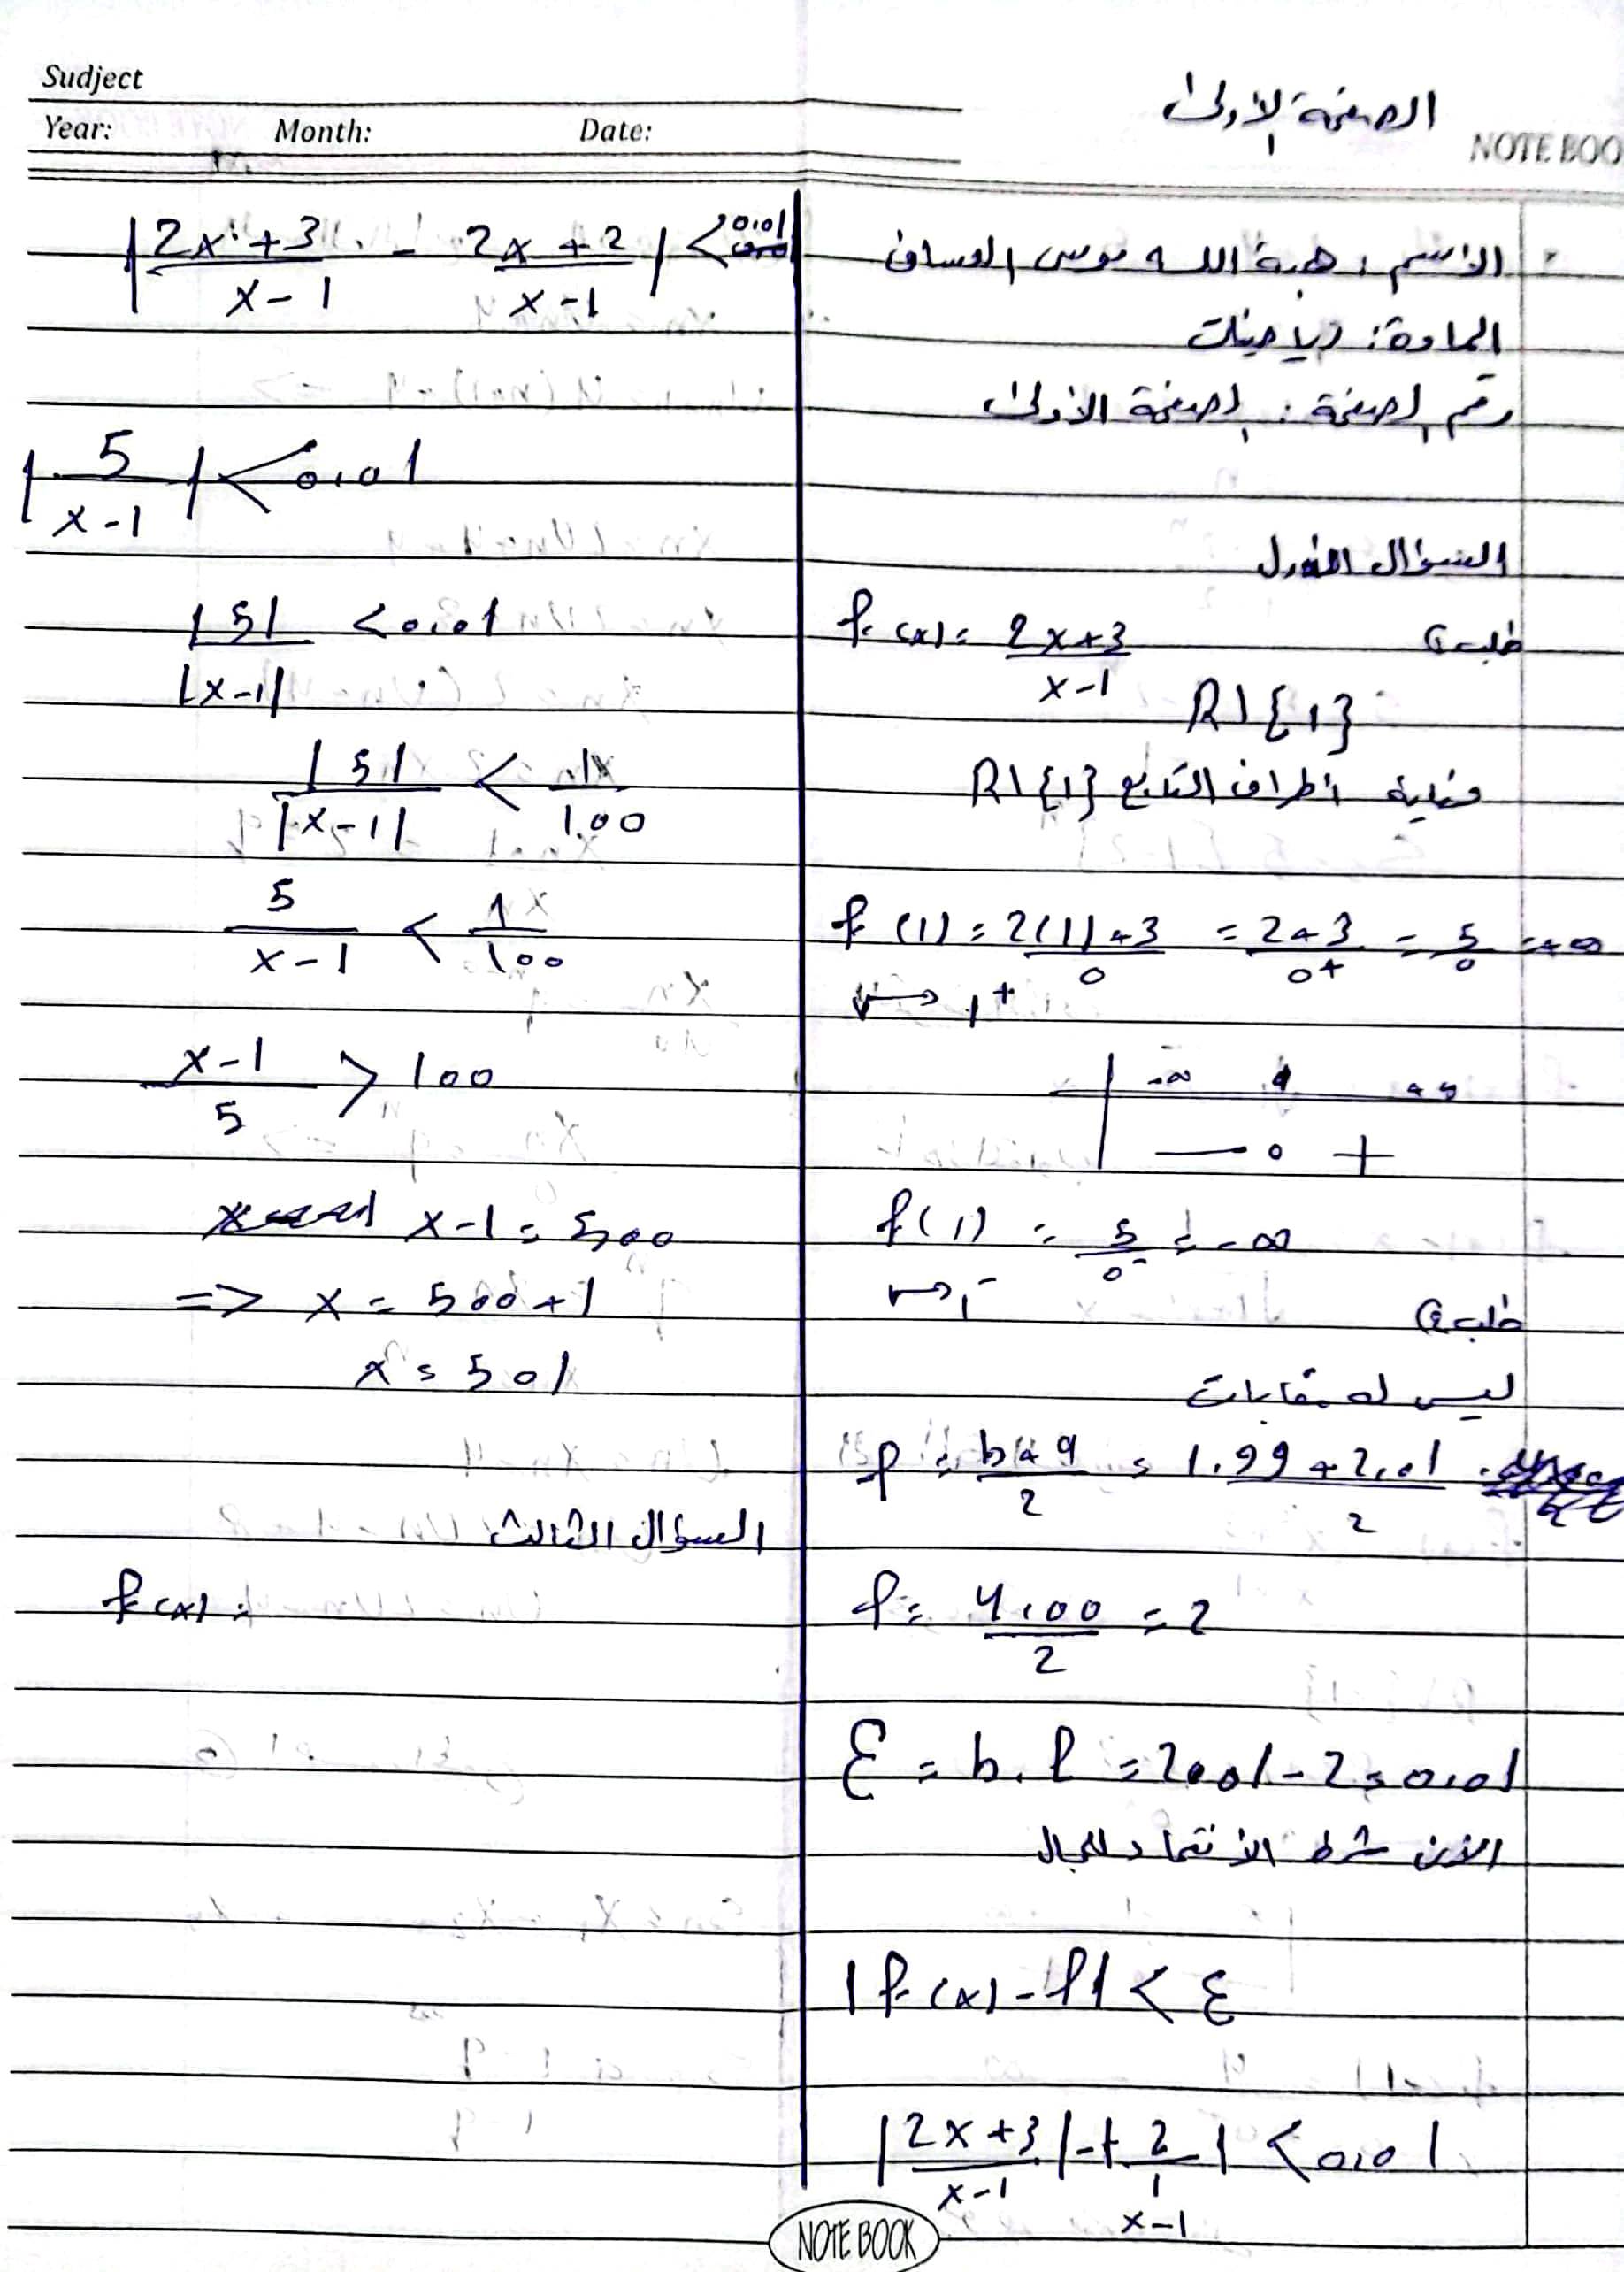 Sudject
Year: Month: Date:
الصفحة الأولى
NOTE BOO
الاسم: هبة الله موسى العساف
المادة: رياضيات
رقم الصفحة: الصفحة الأولى
السؤال الأول
طلب ①
f(x) = 2x+3 / x-1
R\{1}
نهاية أطراف التابع R\{1}
f(1) = 2(1)+3 / 0 = 2+3 / 0+ = 5/0 = +∞
x → 1+
-∞ 1 +∞
— 0 +
f(1) = 5/0- = -∞
x → 1-
طلب ②
ليس له مقابات
ℓ = b+a / 2 = 1.99 + 2.01 / 2
ℓ = 4.00 / 2 = 2
ε = b-ℓ = 2.01 - 2 = 0.01
الآن شرط الانتماء للمجال
|f(x) - ℓ| < ε
|2x+3 / x-1| - | 2/1 | < 0.01
x-1
NOTE BOOK
|2x+3 / x-1 - 2x+2 / x-1| < 0.01
|5 / x-1| < 0.01
|5| / |x-1| < 0.01
|5| / |x-1| < 1/100
5 / x-1 < 1/100
x-1 / 5 > 100
x-1 = 500
=> x = 500+1
x = 501
السؤال الثالث
f(x) =